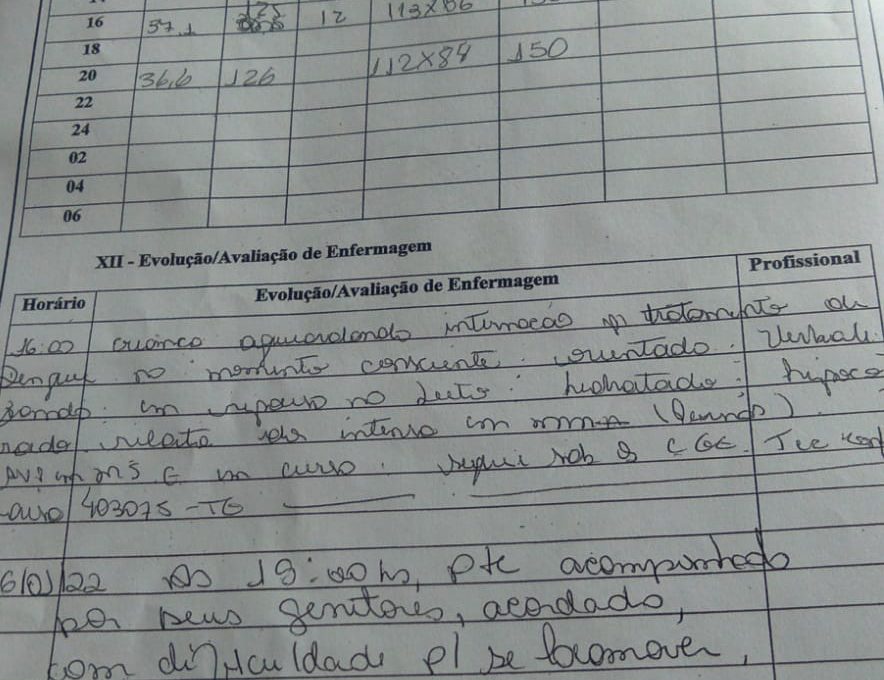 16 37,1 12 113x66
18
20 36,6 126 112x84 150
22
24
02
04
06
XII - Evolução/Avaliação de Enfermagem
Horário Evolução/Avaliação de Enfermagem Profissional
16:00 criança aguardando internação p/ tratamento de
Dengue no momento consciente. orientado. Verbali
zando. em repouso no leito. hidratado. hipoco
rado relata dor intensa em
AVP em MS E em curso. segui sob
403075-TE
6/01/22 As 19:00 hs, pte acompanhado
por seus genitores, acordado,
com dificuldade p/ se locomover,